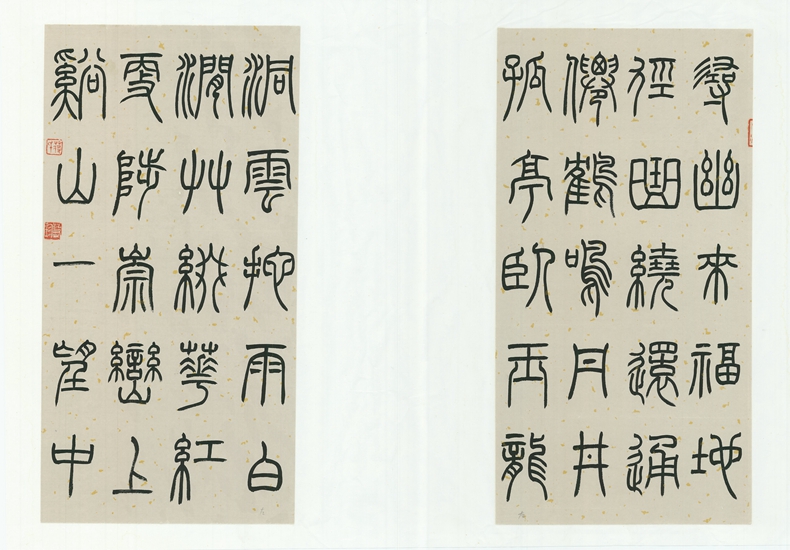 尋幽來福地
徑曲繞還通
僊鶴鳴丹井
孤亭臥玉龍
洞雲拖雨白
澗艸絨華紅
更陟崇巒上
谿山一望中